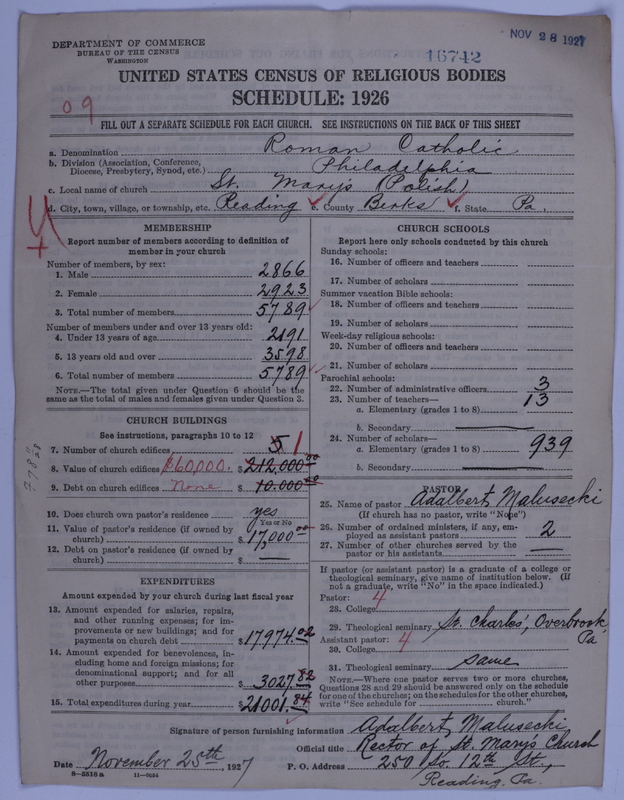 NOV 28 1927
DEPARTMENT OF COMMERCE
BUREAU OF THE CENSUS
WASHINGTON
16742
UNITED STATES CENSUS OF RELIGIOUS BODIES
SCHEDULE: 1926
09
FILL OUT A SEPARATE SCHEDULE FOR EACH CHURCH. SEE INSTRUCTIONS ON THE BACK OF THIS SHEET
a. Denomination Roman Catholic
b. Division (Association, Conference, Diocese, Presbytery, Synod, etc.) Philadelphia
c. Local name of church St. Mary's (Polish)
d. City, town, village, or township, etc. Reading e. County Berks f. State Pa.
MEMBERSHIP
Report number of members according to definition of
member in your church
Number of members, by sex:
1. Male 2866
2. Female 2923
3. Total number of members 5789
Number of members under and over 13 years old:
4. Under 13 years of age 2191
5. 13 years old and over 3598
6. Total number of members 5789
NOTE.—The total given under Question 6 should be the
same as the total of males and females given under Question 3.
CHURCH BUILDINGS
See instructions, paragraphs 10 to 12
7. Number of church edifices 5 1
8. Value of church edifices $60,000. $212,000.00
9. Debt on church edifices None $10.000.00
10. Does church own pastor's residence yes
Yes or No
11. Value of pastor's residence (if owned by
church) $17,000.00
12. Debt on pastor's residence (if owned by
church) $
EXPENDITURES
Amount expended by your church during last fiscal year
13. Amount expended for salaries, repairs,
and other running expenses; for im-
provements or new buildings; and for
payments on church debt $17974.02
14. Amount expended for benevolences, in-
cluding home and foreign missions; for
denominational support; and for all
other purposes $3027.82
15. Total expenditures during year $21001.84
CHURCH SCHOOLS
Report here only schools conducted by this church
Sunday schools:
16. Number of officers and teachers
17. Number of scholars
Summer vacation Bible schools:
18. Number of officers and teachers
19. Number of scholars
Week-day religious schools:
20. Number of officers and teachers
21. Number of scholars
Parochial schools:
22. Number of administrative officers 3
23. Number of teachers—
a. Elementary (grades 1 to 8) 13
b. Secondary
24. Number of scholars—
a. Elementary (grades 1 to 8) 939
b. Secondary
PASTOR
25. Name of pastor Adalbert Malusecki
(If church has no pastor, write "None")
26. Number of ordained ministers, if any, em-
ployed as assistant pastors 2
27. Number of other churches served by the
pastor or his assistants
If pastor (or assistant pastor) is a graduate of a college or
theological seminary, give name of institution below. (If
not a graduate, write "No" in the space indicated.)
Pastor: 4
28. College
29. Theological seminary St. Charles', Overbrook, Pa
Assistant pastor: 4
30. College
31. Theological seminary same
NOTE.—Where one pastor serves two or more churches,
Questions 28 and 29 should be answered only on the schedule
for one of the churches; on the schedules for the other churches,
write "See schedule for church."
Signature of person furnishing information Adalbert Malusecki
Official title Rector of St. Mary's Church
Date November 25th, 1927 P. O. Address 250 So. 12th St.,
8—5518 a 11—9054 Reading, Pa.